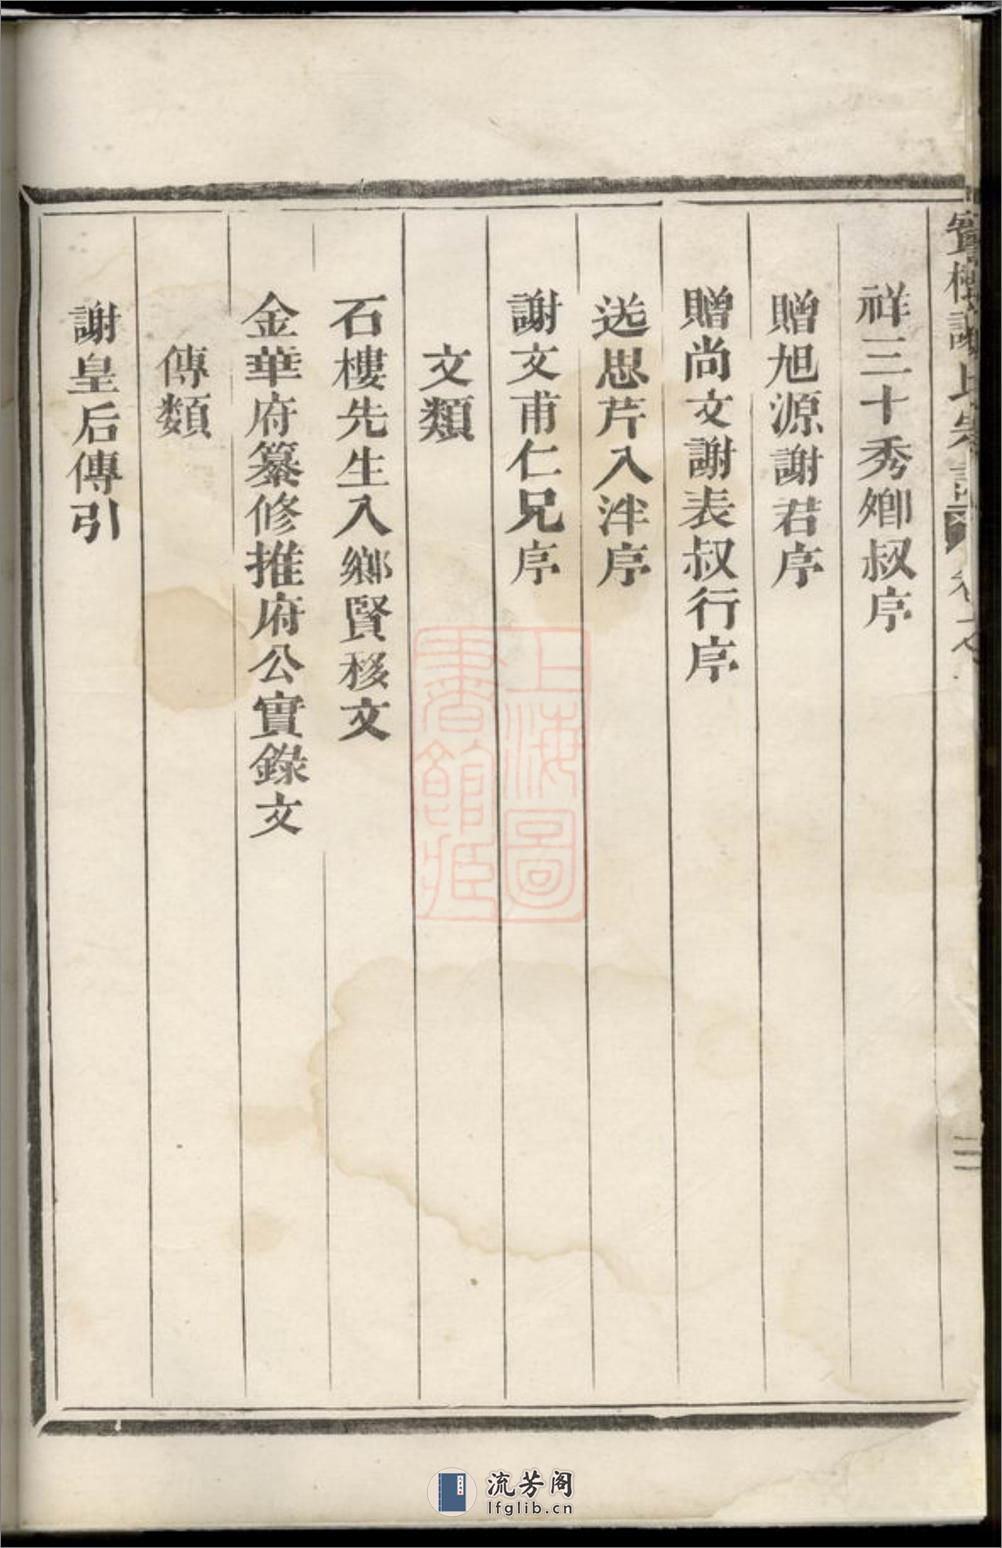 寳樹謝氏宗譜 卷之 二
祥三十秀卿叔序
贈旭源謝君序
贈尚文謝表叔行序
送思芹入泮序
謝文甫仁兄序
文類
石樓先生入鄉賢移文
金華府纂修推府公實錄文
傳類
謝皇后傳引
上海圖書館藏
流芳阁
lfglib.cn